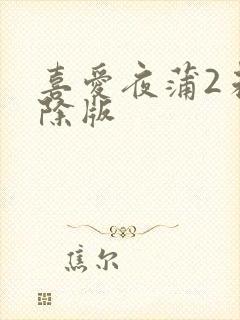 喜爱夜蒲2未
除版
焦尔